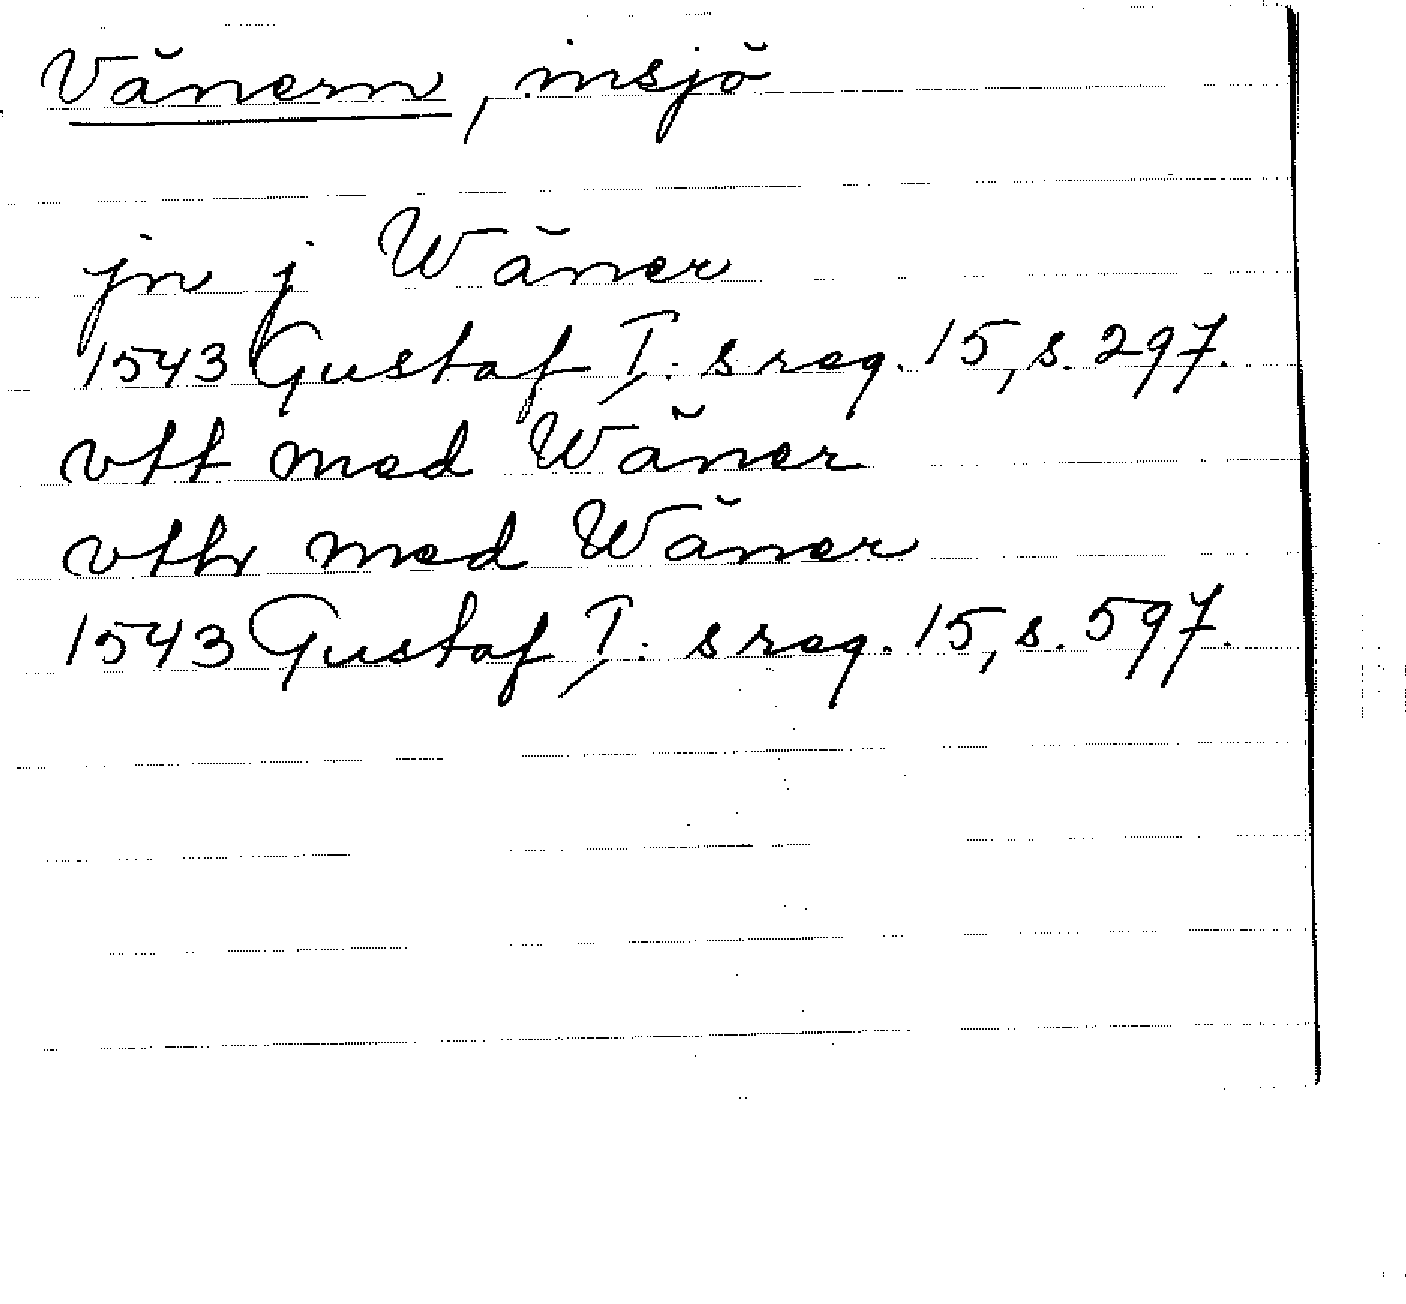 Vänern, insjö
jn j Wäner
1543 Gustaf I:s reg. 15, s. 297.
vtt med Wäner
vthr med Wäner
1543 Gustaf I:s reg. 15, s. 597.